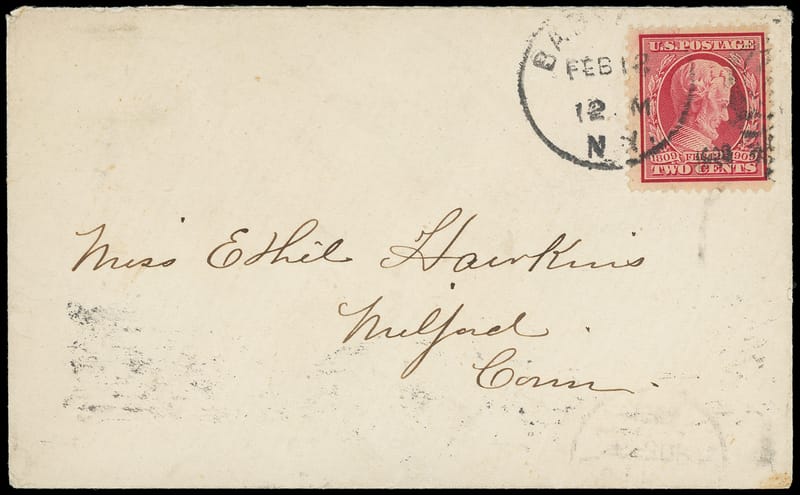 FEB 12
12 M
N.Y.
U.S. POSTAGE
1809 FEB. 12 1909
TWO CENTS
Miss Ethel Hawkins
Milford.
Conn.